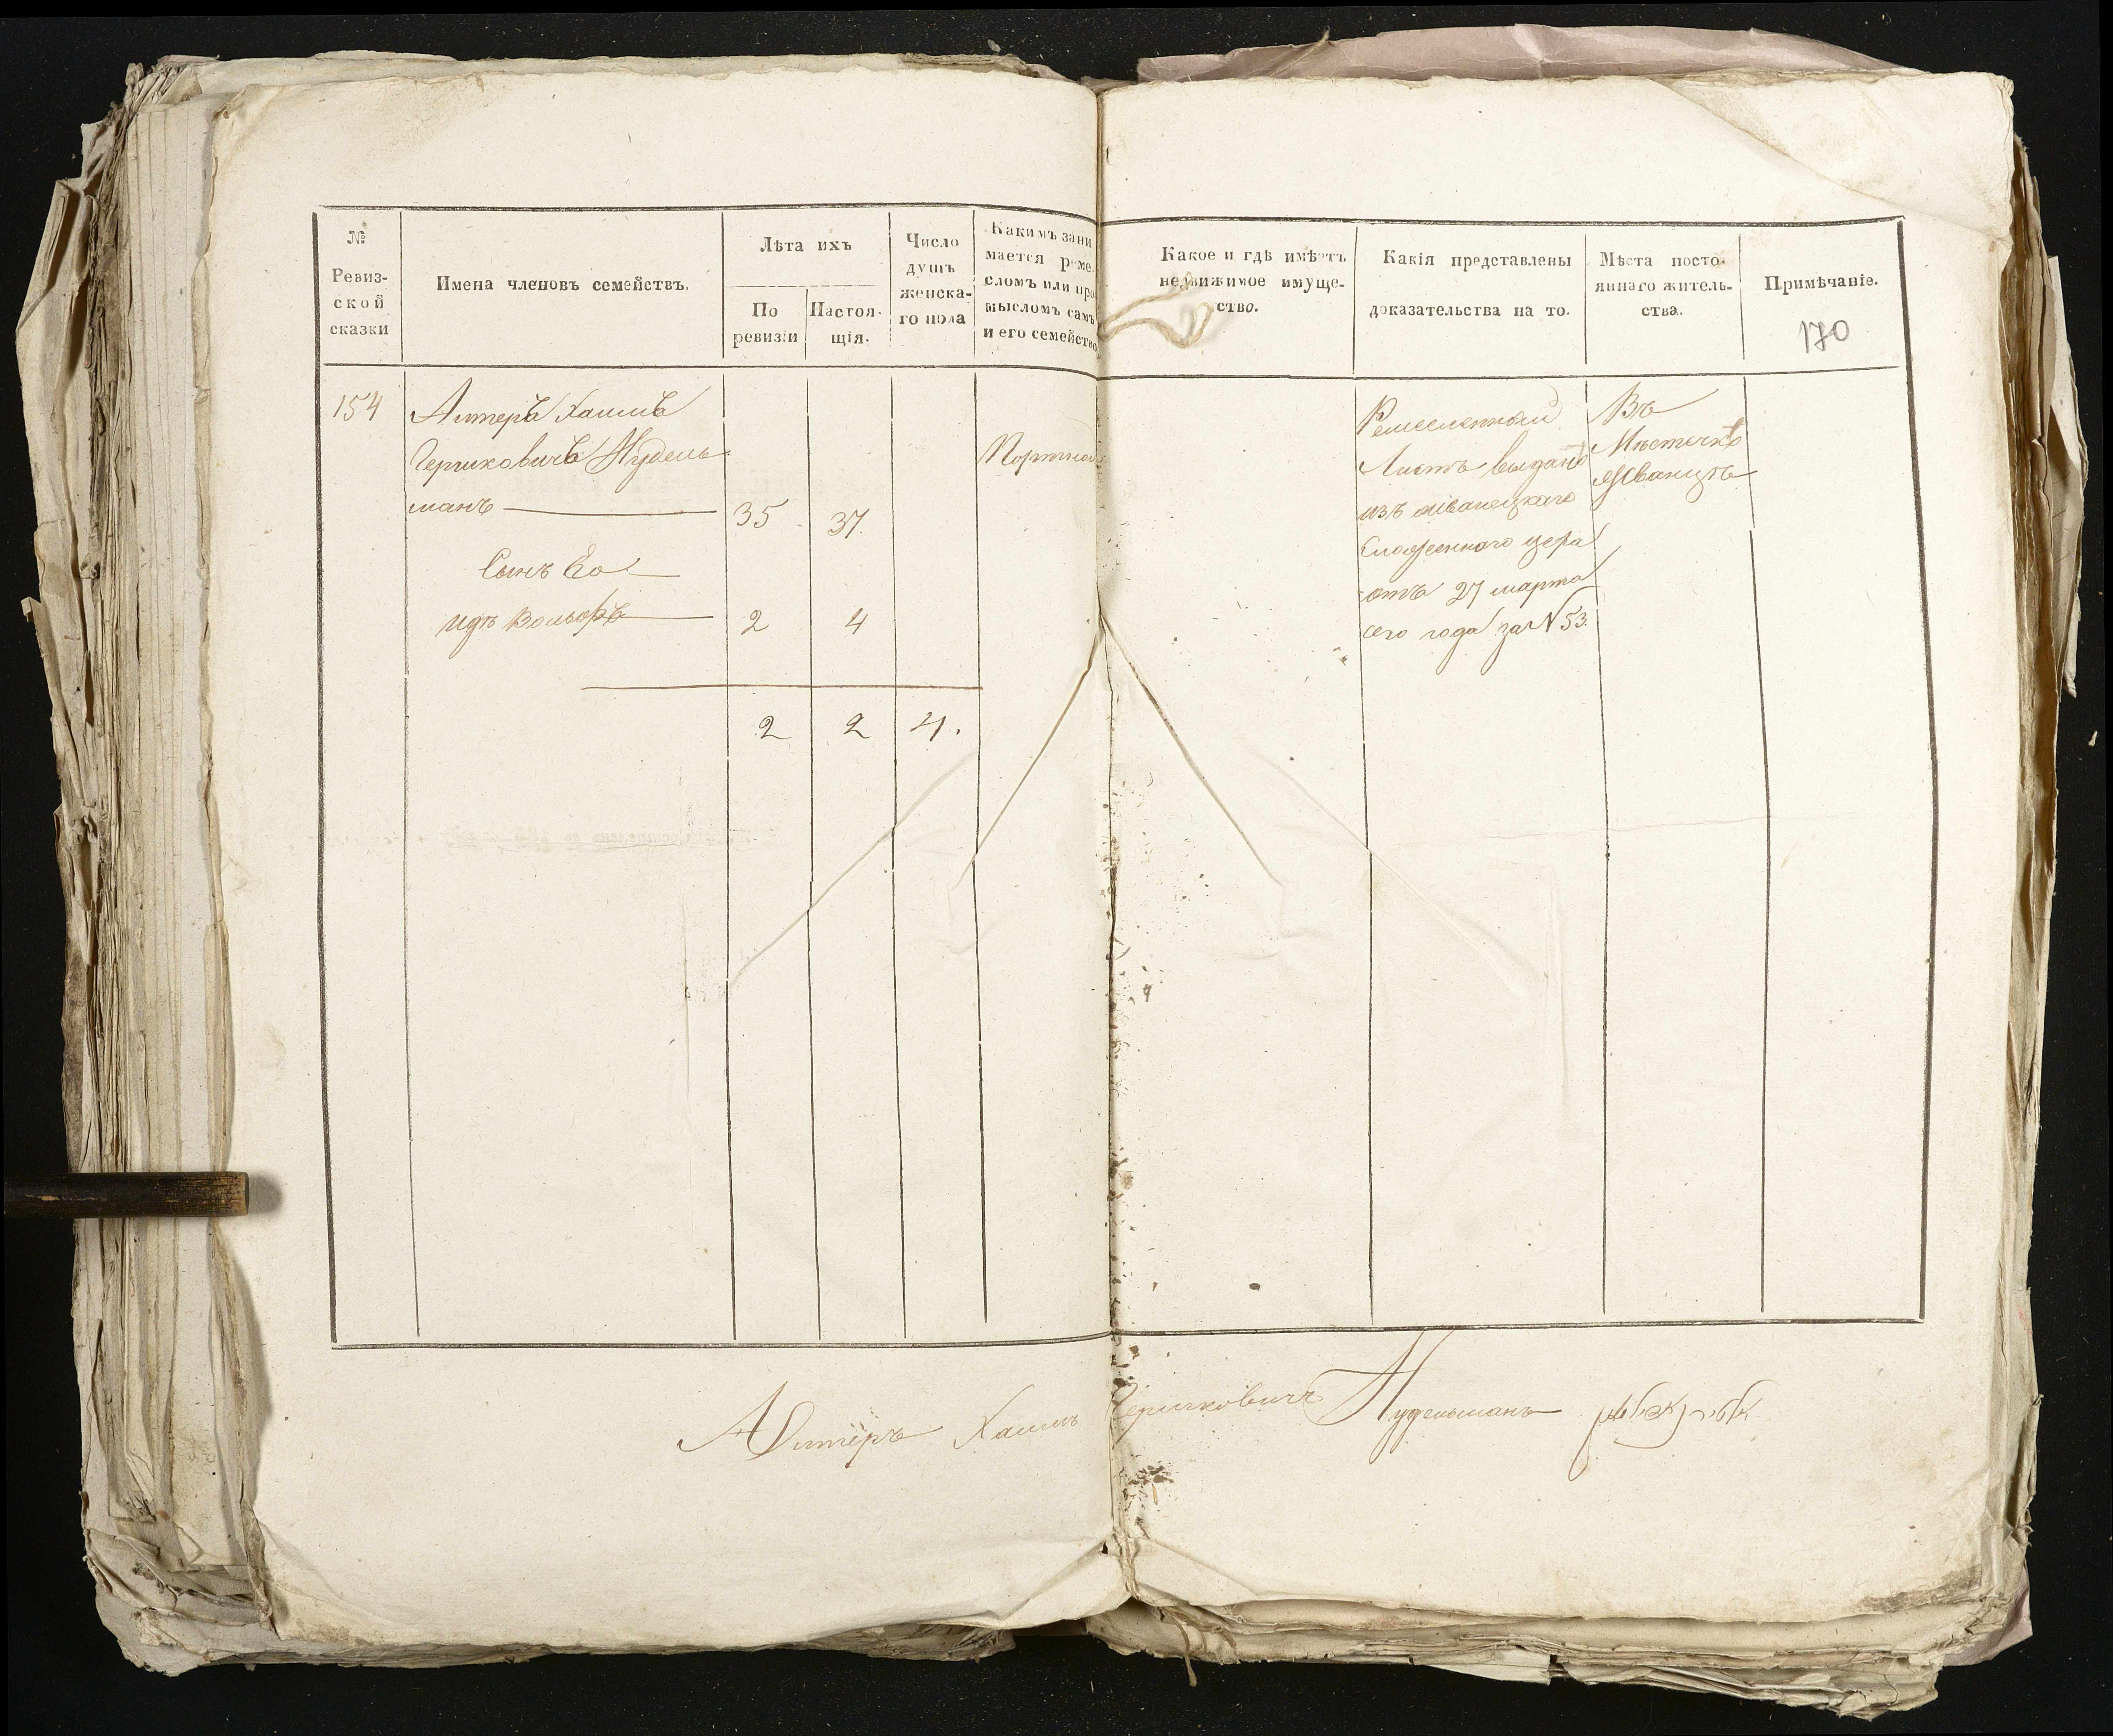 №
Ревиз-
ской
сказки
Имена членовъ семействъ.
Лѣта ихъ
По
ревизіи
Настоя-
щія.
Число
душъ
женска-
го пола
Какимъ зани
мается реме-
сломъ или про-
мысломъ самъ
и его семейство
Какое и гдѣ имѣетъ
недвижимое имуще-
ство.
Какія представлены
доказательства на то.
Мѣста посто-
яннаго житель-
ства.
Примѣчаніе.
170
154
Алтеръ Хаимъ
Гершковичъ Нудель
манъ
35
37
Сынъ Ео
Идъ Вольфъ
2
4
2 2 4.
Портной
Ремесленный
Листъ выданъ
изъ жванецкаго
Сложеннаго цеха
отъ 27 марта
сего года за N 53.
Въ
Мѣстечкѣ
Жванцѣ
Алтеръ Хаимъ Гершковичъ Нудельманъ